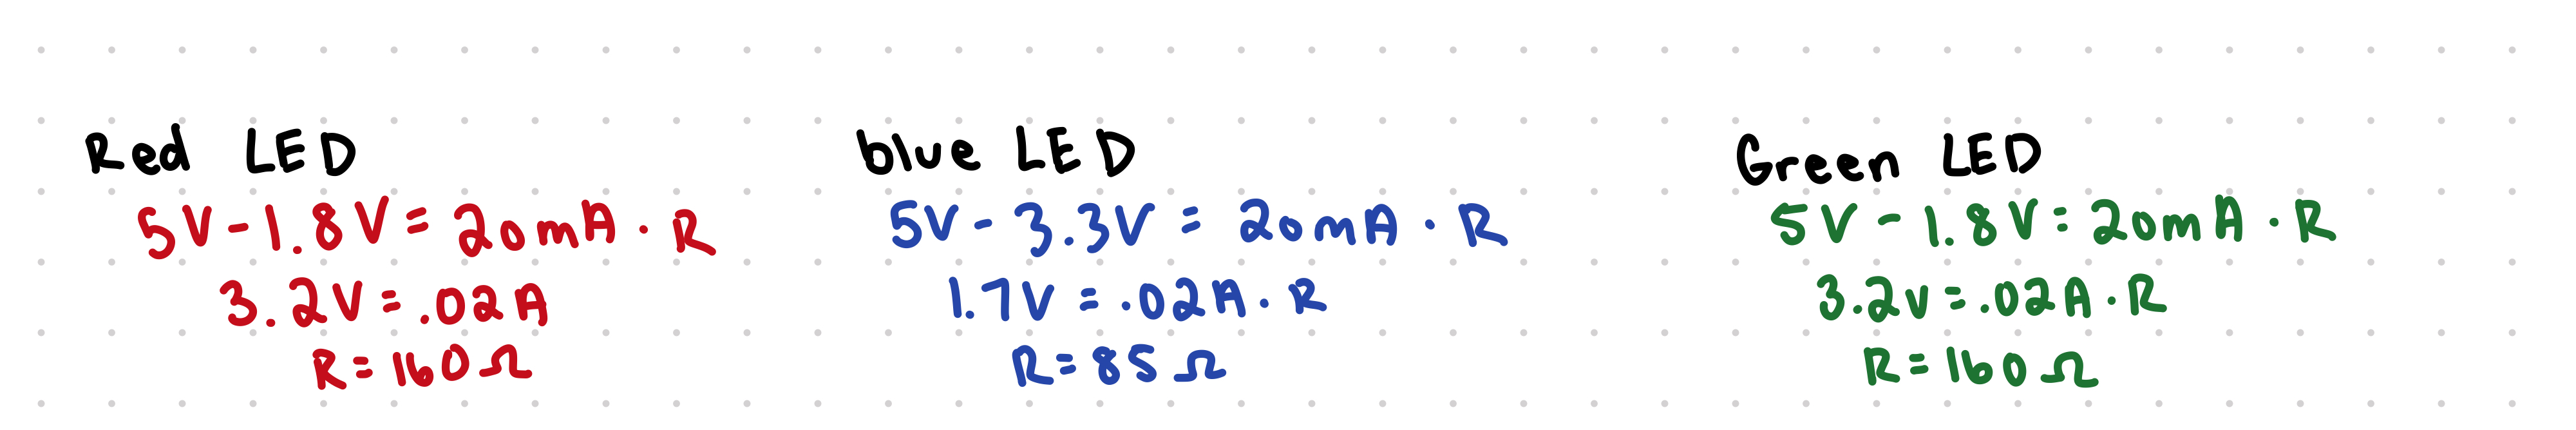 Red LED
5V-1.8V=20mA·R
3.2V=.02A
R=160Ω
blue LED
5V-3.3V=20mA·R
1.7V=.02A·R
R=85Ω
Green LED
5V-1.8V=20mA·R
3.2v=.02A·R
R=160Ω